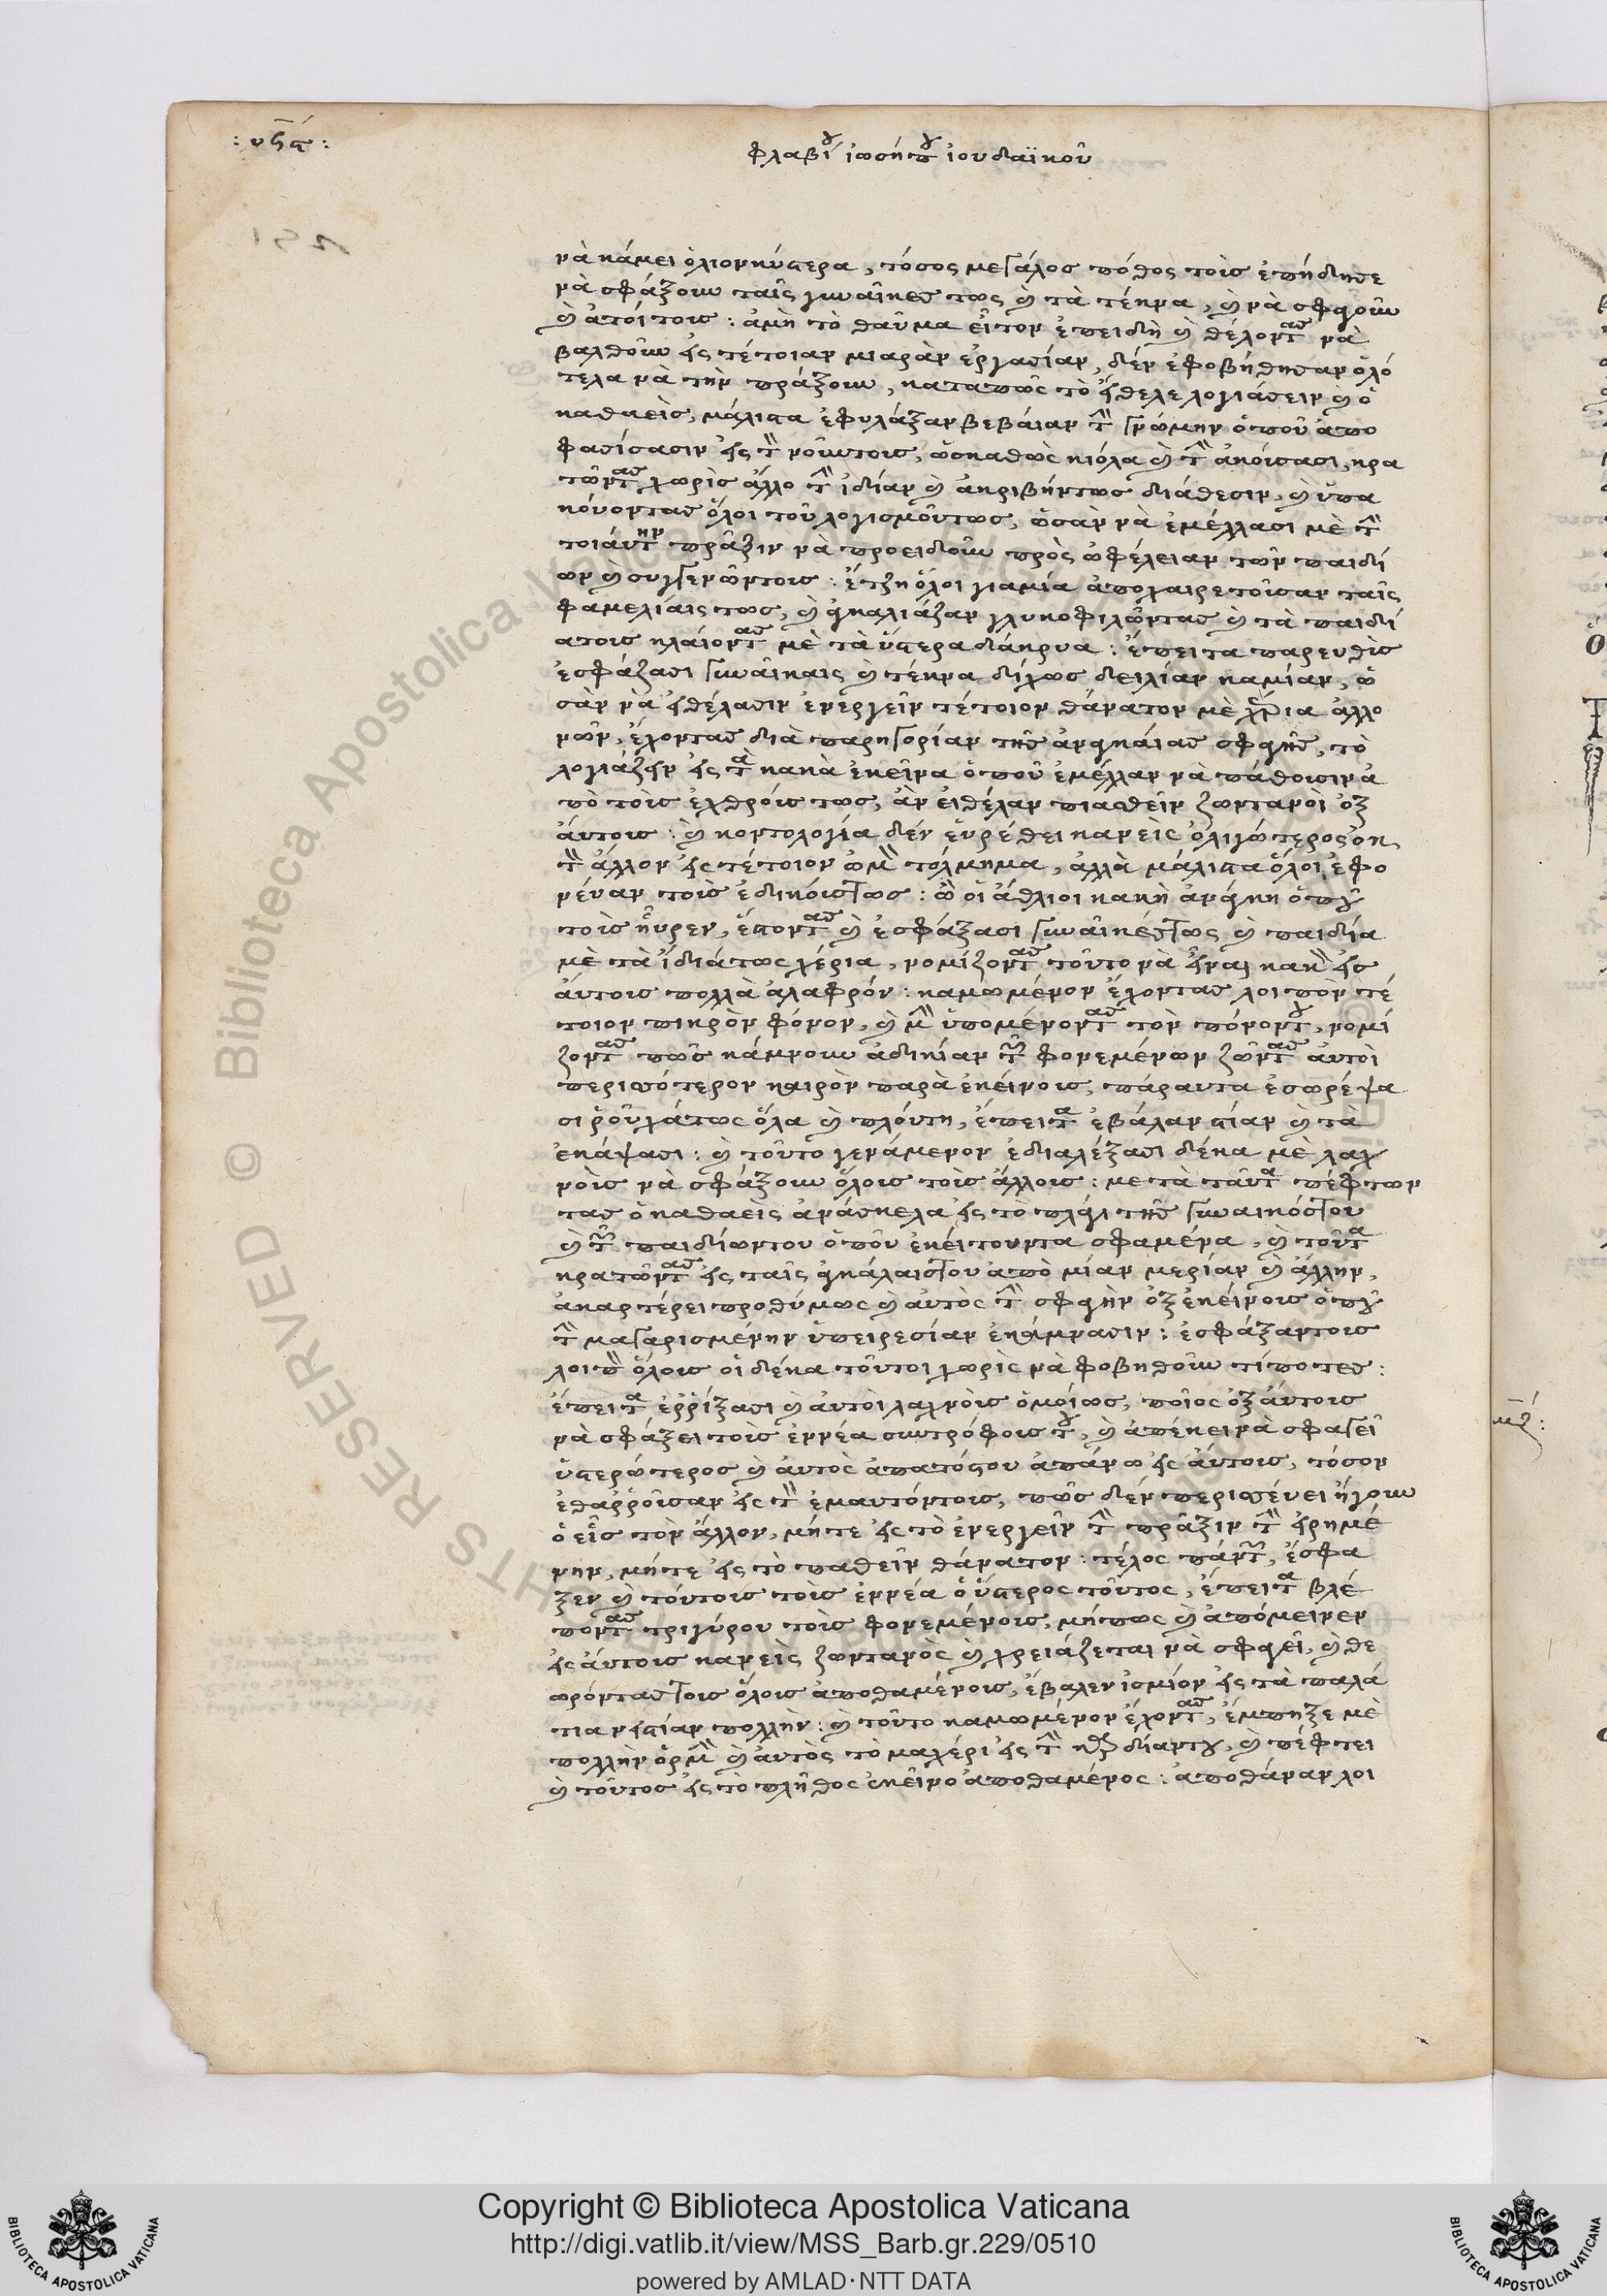 : υϟα :
φλαβίου ἰωσήπου ἰουδαϊκοῦ
νὰ κάμει ὀλιονηύτερα, τόσος μεγάλος πόθος τοὶς ἐπήδησε
νὰ σφάξουν ταῖς γυναῖκες τως καὶ τὰ τέκνα, καὶ νὰ σφαγοῦν
καὶ ἀτοίτοις : ἀμὴ τὸ θαῦμα εἶτον ἐπειδὴ καὶ θέλοντας νὰ
βαλθοῦν εἰς τέτοιαν μιαρὰν ἐργασίαν, δέν ἐφοβήθησαν ὁλό
τελα νὰ τὴν πράξουν, καταπῶς τὸ εἴθελε λογιάσειν καὶ ὁ
καθαεὶς, μάλιστα ἐφυλάξαν βεβαίαν τὴν γνώμην ὁποῦ ἀπο
φασίσασιν εἰς τὸν νοῦντοις, ὡσκαθὼς κιόλα καὶ τὴν ἀκούσασι, κρα
τῶντας χωρὶς ἄλλο τὴν ἰδίαν καὶ ἀκριβήντως διάθεσιν, καὶ ὑπα
κούοντας ὅλοι τοῦ λογισμοῦντως, ὡσὰν νὰ ἐμέλλασι μὲ τὴν
τοιάυτην πρᾶξιν νὰ προειδοῦν πρὸς ὠφέλειαν τῶν παιδί
ων καὶ συγγενῶντοις : ἔτζη ὅλοι γιαμία ἀποχαιρετοῦσαν ταῖς
φαμελίαις τως, καὶ ἀγκαλιάζαν γλυκοφιλῶντας καὶ τὰ παιδί
ατοις κλαίοντας μὲ τὰ ὕστερα δάκρυα : ἔπειτα παρευθὶς
ἐσφάζασι γυναίκαις καὶ τέκνα δίχως δειλίαν καμίαν, ὡ
σὰν νὰ εἰθέλασιν ἐνεργεῖν τέτοιον θάνατον μὲ χέρια ἀλλο
νῶν, ἔχοντας διὰ παρηγορίαν τῆς ἀναγκαίας σφαγῆς, τὸ
λογιάζειν εἰς τὰ κακὰ ἐκεῖνα ὁποῦ ἐμέλλαν νὰ πάθουσιν ἀ
πὸ τοὶς ἐχθρόις τως, ἀν εἰθέλαν πιασθεῖν ζωντανοὶ ὀξ
ἀυτοις : καὶ κοντολογία δέν ἑυρέθει κανεὶς ὀλιγώτερος ἐκ
τὸν ἄλλον εἰς τέτοιον ὠμὸν τόλμημα, ἀλλὰ μάλιστα ὅλοι ἐφο
νέυαν τοὶς ἐδικόιστως : ὢ οἱ ἄθλιοι κακὴ ἀνάγκη ὁποῦ
τοὶς ηὗρεν, ἔστοντας καὶ ἐσφάξασι γυναῖκέστως καὶ παιδία
μὲ τὰ ἰδιάτως χέρια, νομίζοντας τοῦτο νὰ εἶναι κακὸν εἰς
ἀυτοις πολλὰ ἀλαφρόν : καμωμένον ἔχοντας λοιπὸν τέ
τοιον πικρὸν φόνον, καὶ μὴν ὑπομένοντας τὸν πόνοντου, νομί
ζοντας πῶς κάμνουν ἀδικίαν τῶν φονεμένων ζῶντας ἀυτοὶ
περισότερον καιρὸν παρὰ ἐκείνοις, πάραυτα ἐσωρέψα
σι ῥοῦχάτως ὅλα καὶ πλόυτη, ἔπειτα ἐβάλαν στίαν καὶ τὰ
ἐκάψασι : καὶ τοῦτο γενάμενον ἐδιαλέξασι δέκα μὲ λαχ
νὸις νὰ σφάξουν ὅλοις τοὶς ἄλλοις : μετὰ ταῦτα πέφτων
τας ὁ καθαεὶς ἀνάσκελα εἰς τὸ πλάγι τῆς γυναικόστου
καὶ τῶν παιδίωντου ὁποῦ ἐκείτουντα σφαμένα, καὶ τοῦτα
κρατῶντας εἰς ταῖς ἀγκάλαιστου ἀπὸ μίαν μερίαν καὶ ἄλλην,
ἀκαρτέρει προθύμως καὶ ἀυτὸς τὴν σφαγὴν ὀξ ἐκείνοις ὁποῦ
τὴν μαγαρισμένην ὑπειρεσίαν ἐκάμνασιν : ἐσφάξαντοις
λοιπὸν ὅλοις οἱ δέκα τοῦτοι χωρὶς νὰ φοβηθοῦν τίποτες :
ἔπειτα ἐῤῥίξασι καὶ ἀυτοὶ λαχνὸις ὁμοίως, ποῖος ὀξ ἀυτοις
νὰ σφάξει τοὶς ἐννέα συντρόφοις του, καὶ ἀπέκει νὰ σφαγεῖ
ὑστερώτερος καὶ ἀυτὸς ἀπατόςτου ἀπάνω εἰς ἀυτοις, τόσον
ἐθαῤῥοῦσαν εἰς τὸν ἐμαυτόντοις, πῶς δέν περισέυει ἤγουν
ὁ εἷς τὸν ἄλλον, μήτε εἰς τὸ ἐνεργεῖν τὴν πρᾶξιν τὴν εἰρημέ
νην, μήτε εἰς τὸ παθεῖν θάνατον : τέλος πάντων, ἔσφα
ξεν καὶ τόυτοις τοὶς ἐννέα ὁ ὕστερος τοῦτος, ἔπειτα βλέ
ποντας τριγύρου τοὶς φονεμένοις, μήπως καὶ ἀπόμεινεν
εἰς ἀυτοις κανεὶς ζωντανὸς καὶ χρειάζεται νὰ σφαγεῖ, καὶ θε
ωρόντας τοις ὅλοις ἀποθαμένοις, ἔβαλεν ἰσμιὸν εἰς τὰ παλά
τια νιστίαν πολλὴν : καὶ τοῦτο καμωμένον ἔχοντας, ἔμπηξε μὲ
πολλὴν ὁρμὴν καὶ ἀυτὸς τὸ μαχέρι εἰς τὴν καρδίαντου, καὶ πέφτει
καὶ τοῦτος εἰς τὸ πλῆθος ἐκεῖνο ἀποθαμένος : ἀποθάναν λοι
Copyright © Biblioteca Apostolica Vaticana
http://digi.vatlib.it/view/MSS_Barb.gr.229/0510
powered by AMLAD·NTT DATA